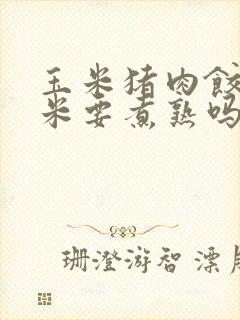 玉米猪肉饺
米要煮熟吗
珊澄游智漂